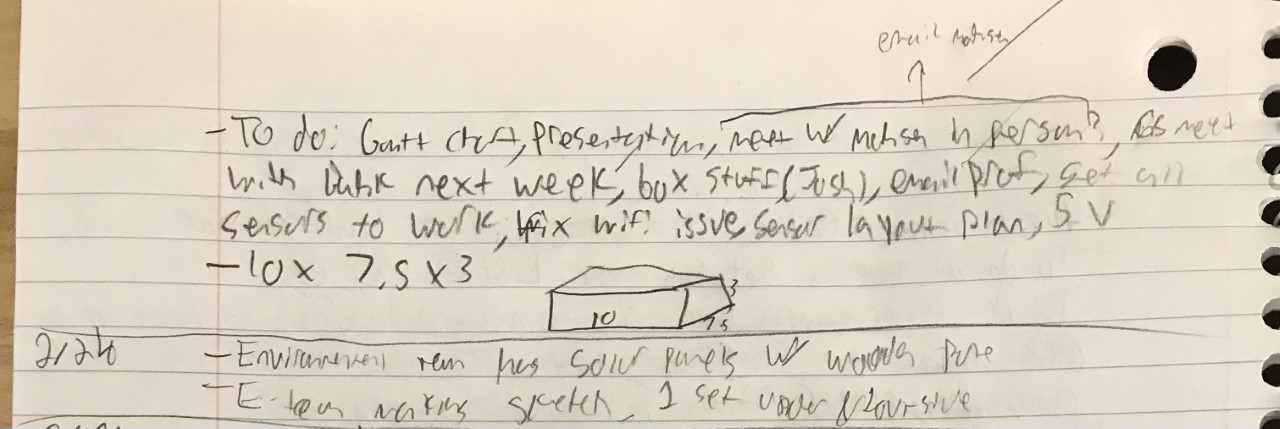 email
- To do: Gantt chart, presentation, meet w/ in person?, meet
with next week, box stuff (Josh), email prof, get all
sensors to work, fix wifi issue, sensor layout plan, 5 V
- 10 x 7.5 x 3
3
10
7.5
2/26
- Environment team has solar panels w/
- E-team making sketch, 1 set under